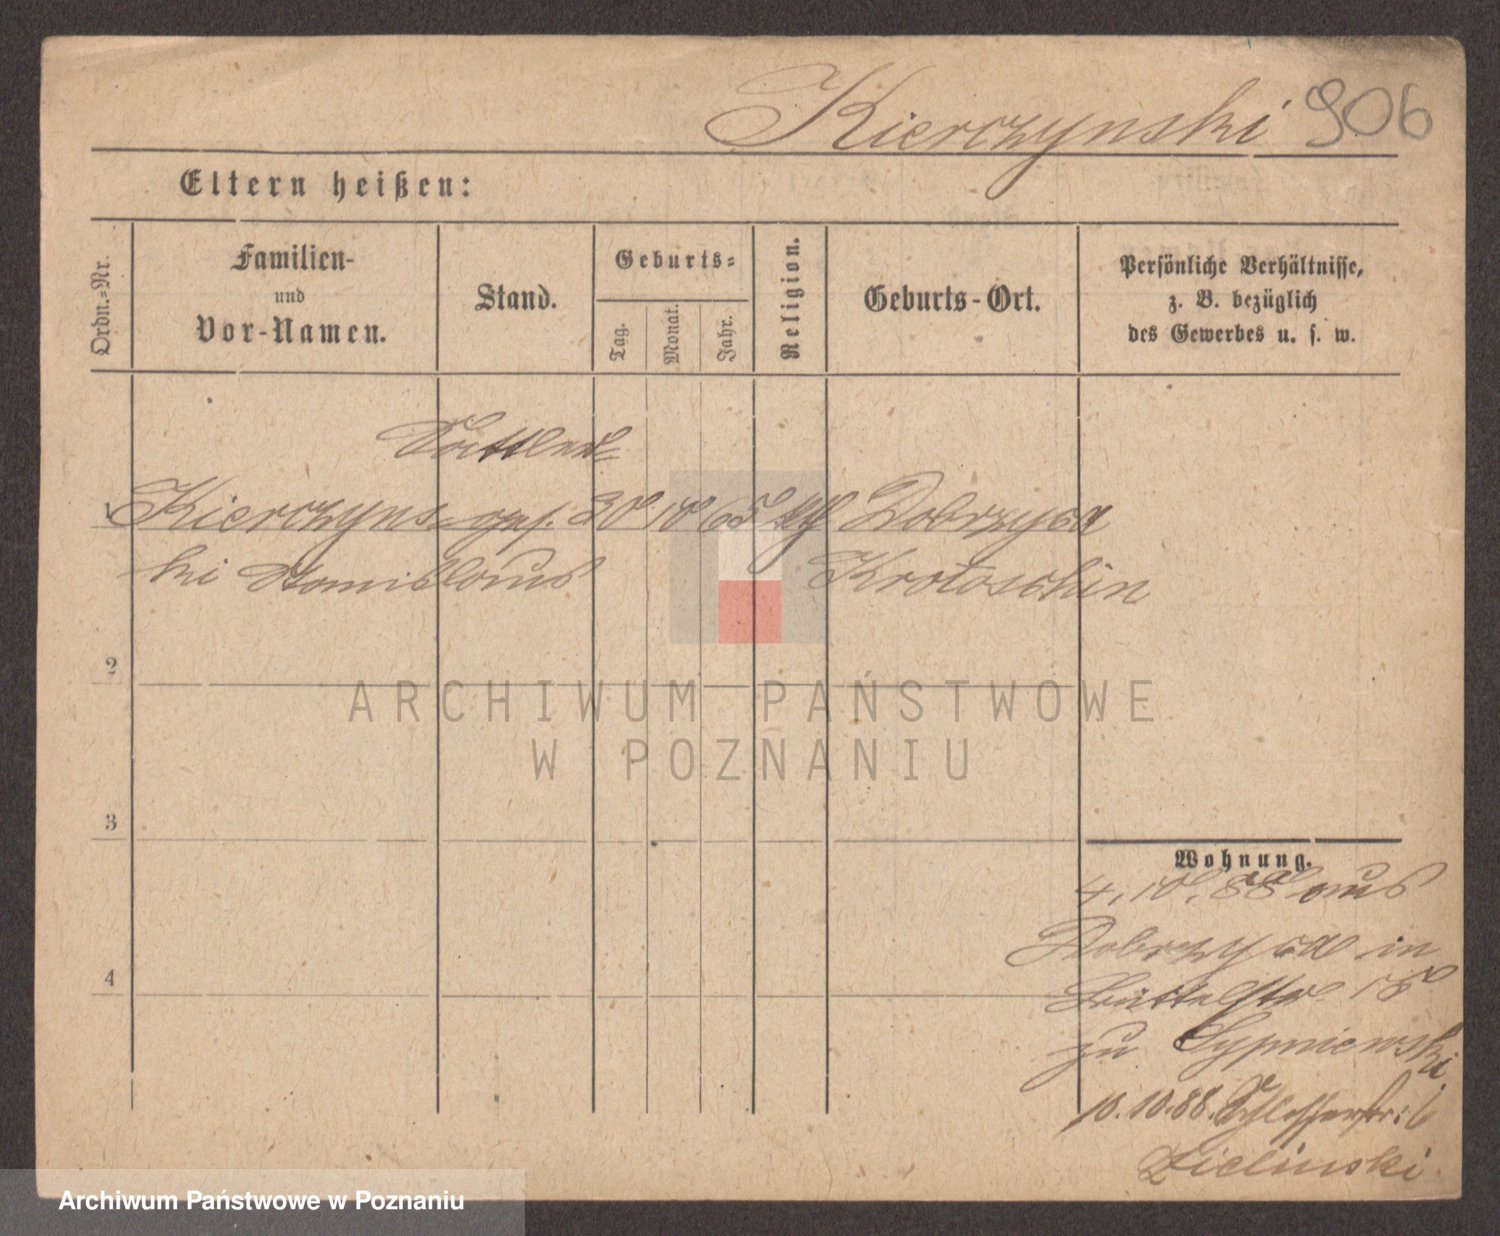 Kierczynski 906
Eltern heißen:
Ordn.-Nr.
Familien-
und
Vor-Namen.
Stand.
Geburts-
Tag.
Monat.
Jahr.
Religion.
Geburts-Ort.
Persönliche Verhältnisse,
z. B. bezüglich
des Gewerbes u. s. w.
Sattler-
1 Kierczyns- ges. 30 10 65 kth Dobrzyca
ki Stanislaus Krotoschin
2
3
4
Wohnung.
4. 10. 88 aus
Dobrzyca in
Büttelstr. 18
zu Sypniewski
10.10.88. Schlosserstr: 6
Zielinski
ARCHIWUM PAŃSTWOWE
W POZNANIU
Archiwum Państwowe w Poznaniu